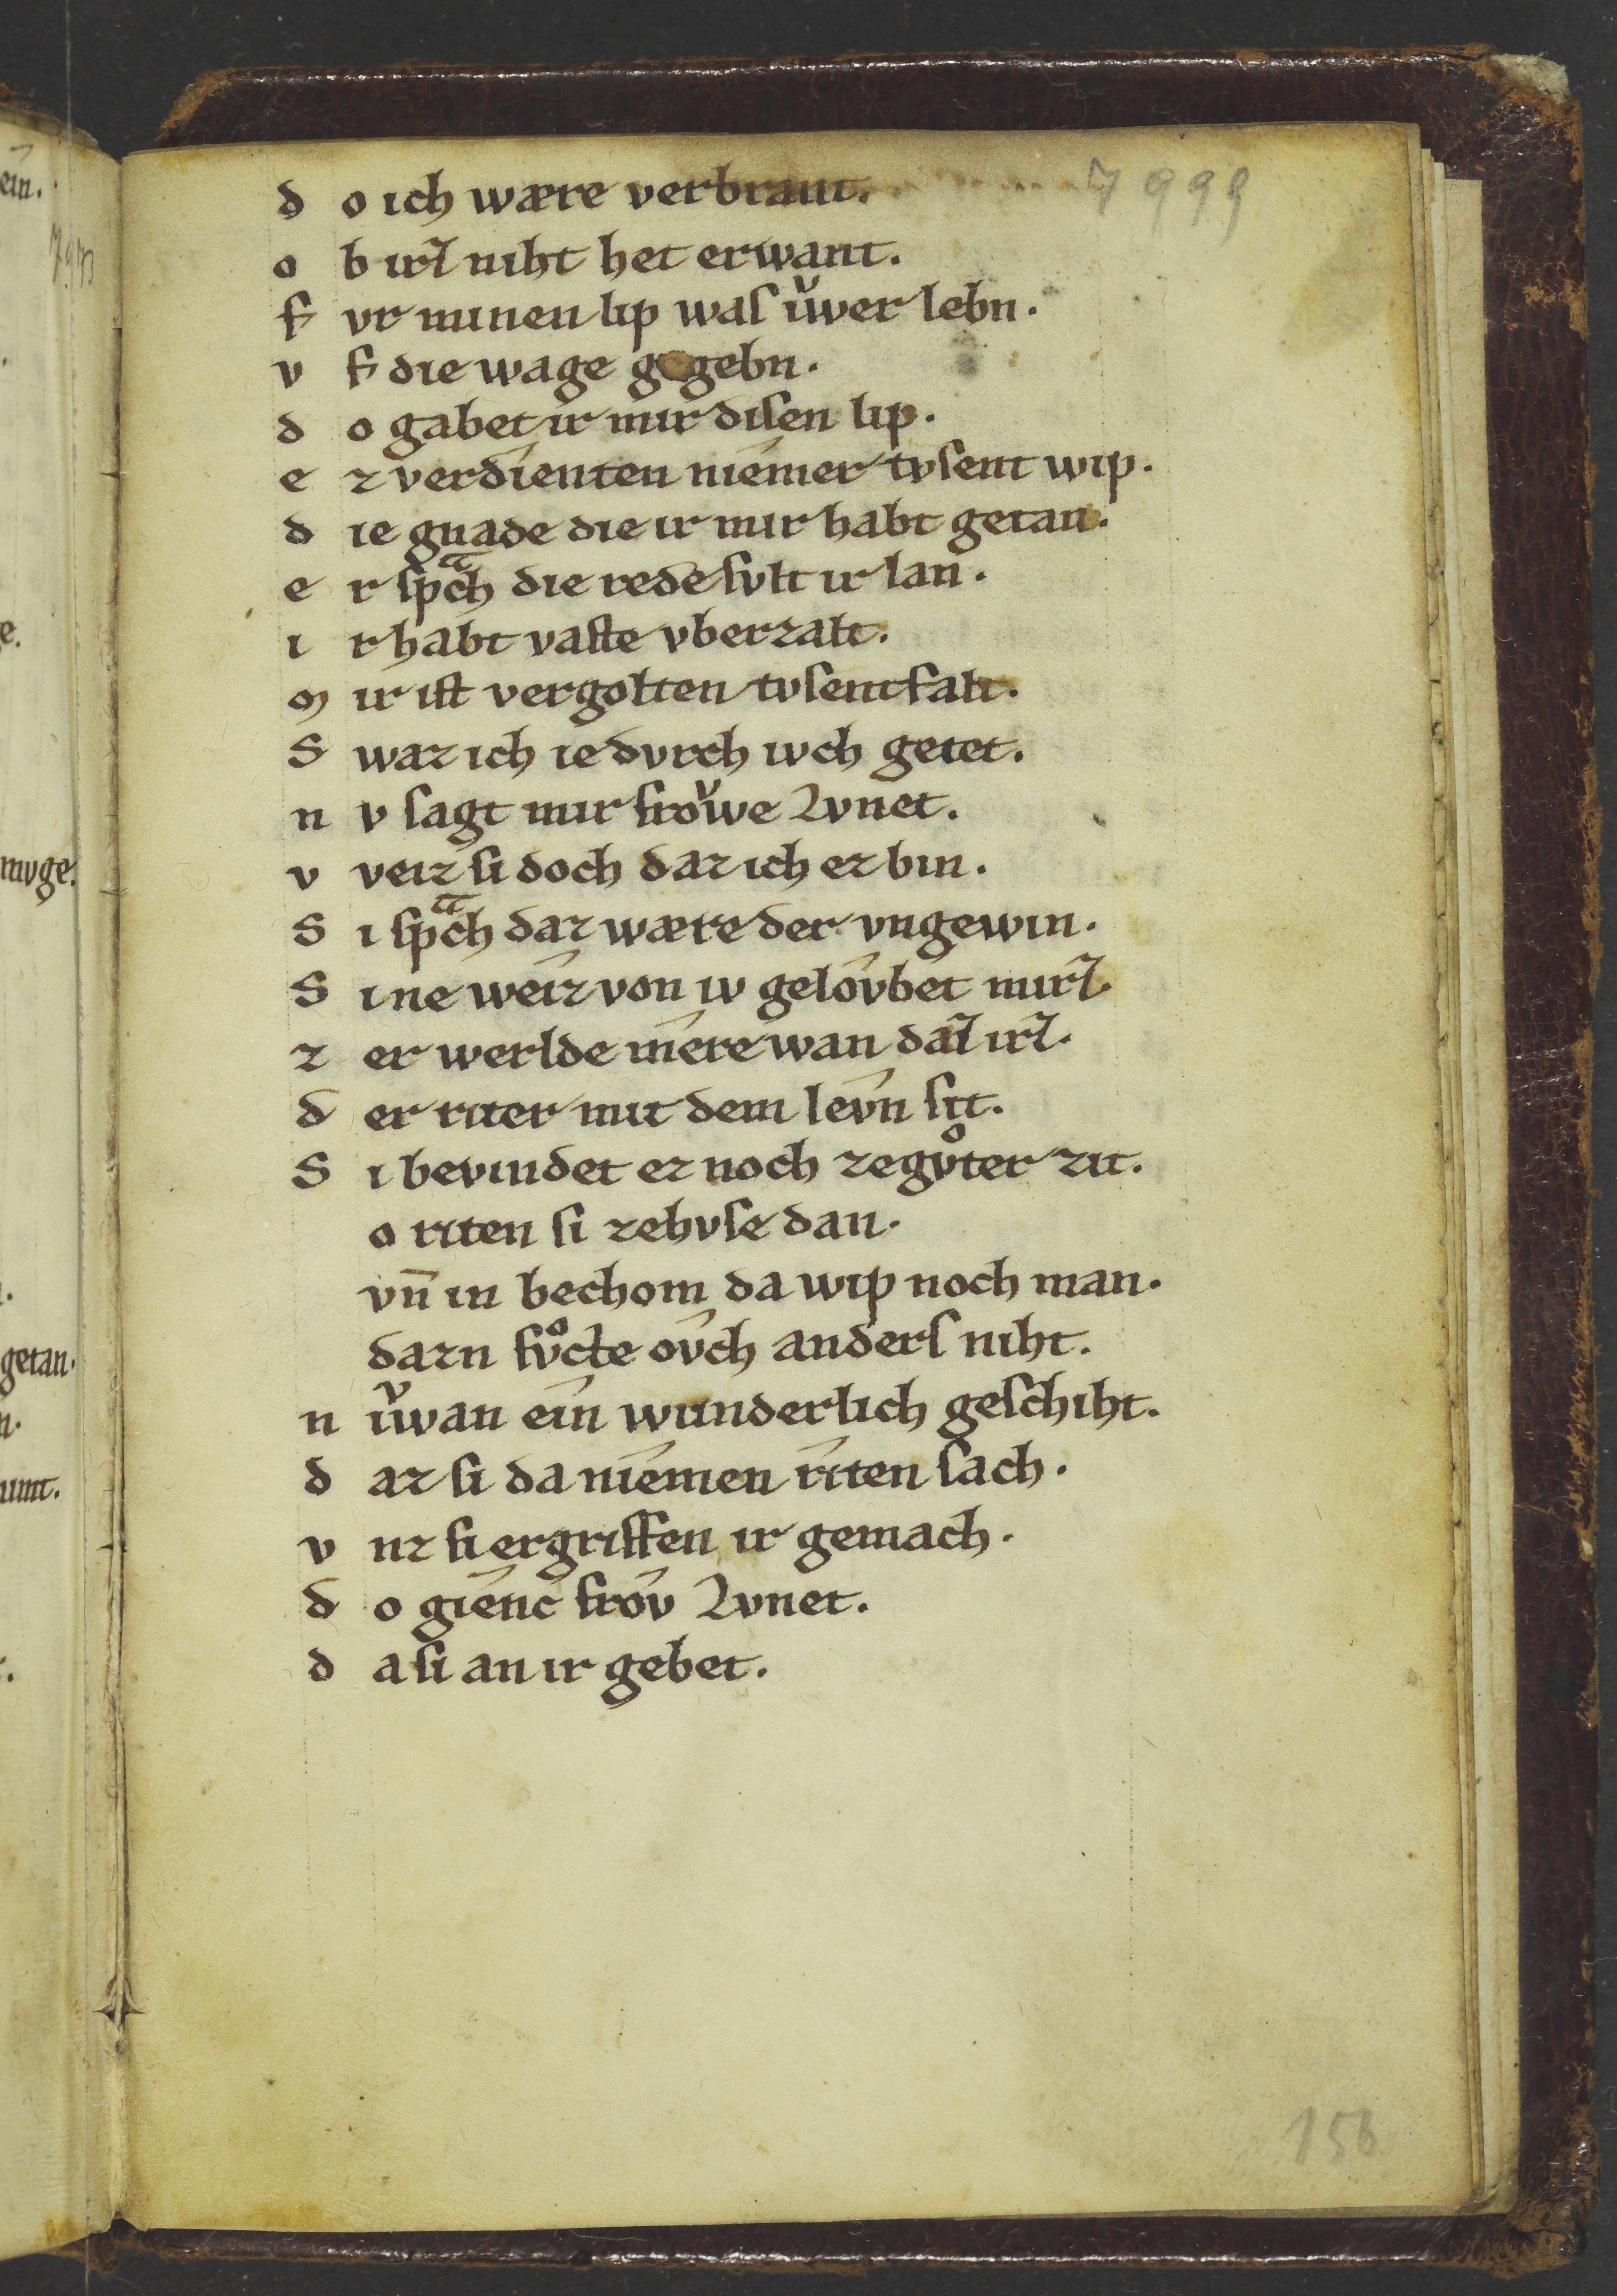 7999
d o ich wære verbrant.
o b irꝭ niht het erwant.
f vr minen lip waſ iwͮer lebn.
v f die wage gegebn.
d o gabet ir mir diſen lip.
e z verdienten niemer tvſent wip.
d ie gnade die ir mir habt getan.
e r ſpͣch die rede ſvlt ir lan.
i r habt vaſte vberzalt.
m ir iſt vergolten tvſentfalt.
S waz ich ie dvrch iwch getet.
n v ſagt mir froͮwe Lvnet.
v veiz ſi doch daz ich ez bin.
S i ſpͣch daz wære der vngewin.
S i ne weiz von iv gelovbet mirꝭ.
z er werlde mere wan daꝭ irꝭ.
d er riter mit dem levn ſit.
S i bevindet ez noch zegvͦter zit.
o riten ſi zehvſe dan.
vn̄ in bechom da wip noch man.
dazn ſvͦcte ovch anderſ niht.
n iwͮan ein wunderlich geſchiht.
d az ſi da niemen riten ſach.
v nz ſi ergriffen ir gemach.
d o gienc frov Lvnet.
d a ſi an ir gebet.
156
ein.
e.
mvge.
getan.
n.
unt.